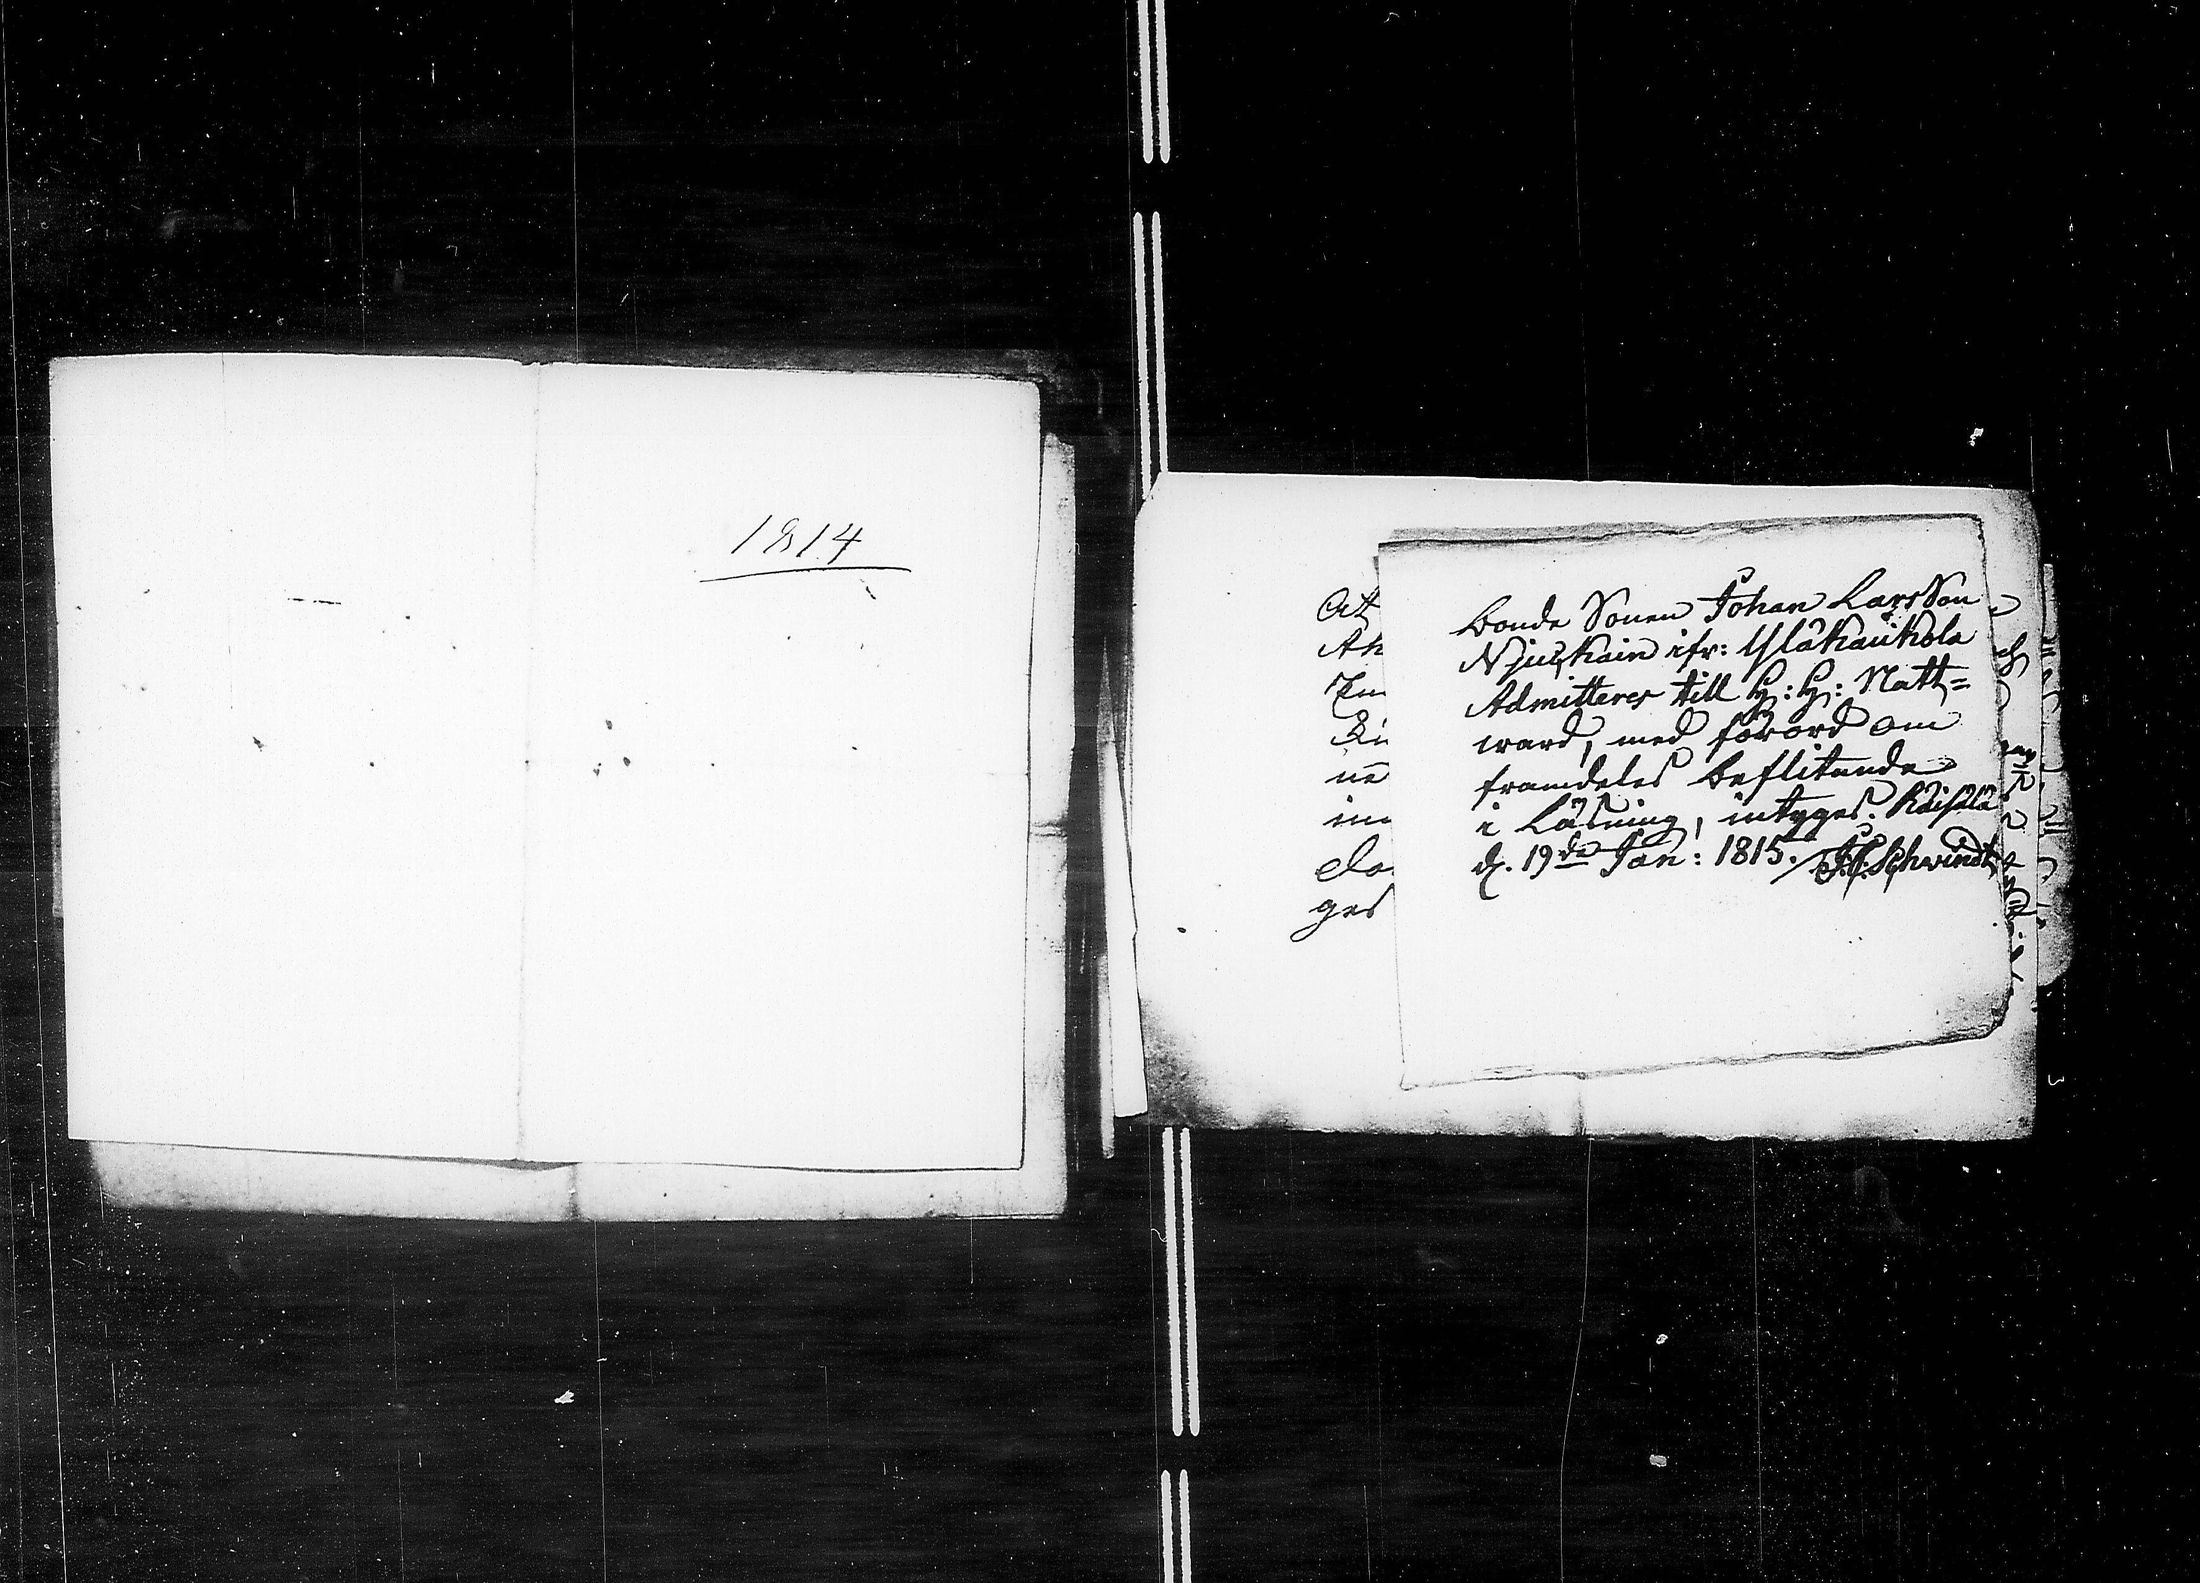 1814
Bonde Sonen Johan Larsson
Njuskain ifr: Ylakaukola
Admitteres till H: H: Natt=
ward, med förord om
framdeles beflitande
i Läsning, intyges. Räisälä
d. 19de Jan: 1815. J.C. Schwindt
At
An
Em
Ri
ne
ges